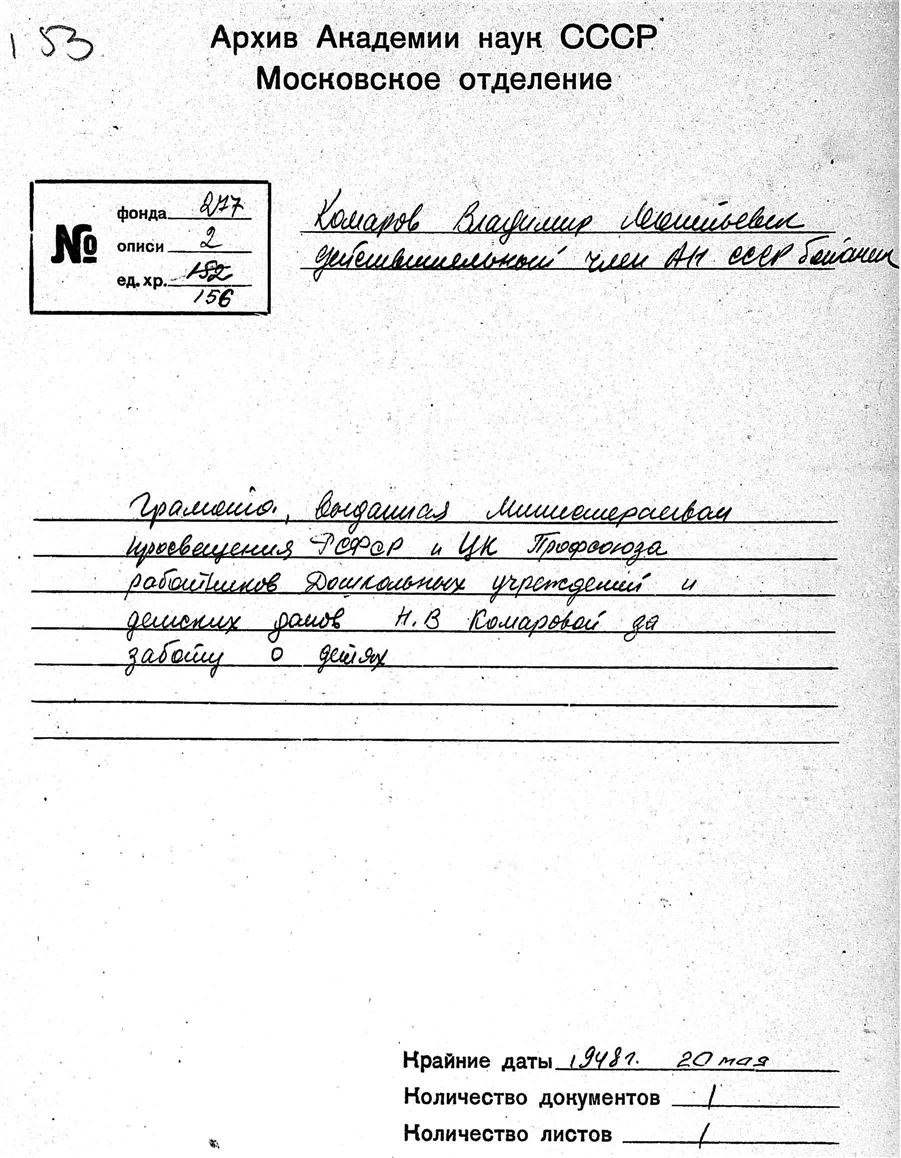 153
Архив Академии наук СССР
Московское отделение
№
фонда 277
описи 2
ед. хр. 152
156
Комаров Владимир Леонтьевич
действительный член АН СССР ботаник
Грамота, выданная Министерством
просвещения РСФСР и ЦК Профсоюза
работников Дошкольных учреждений и
детских домов Н.В Комаровой за
заботу о детях
Крайние даты 1948 г. 20 мая
Количество документов 1
Количество листов 1